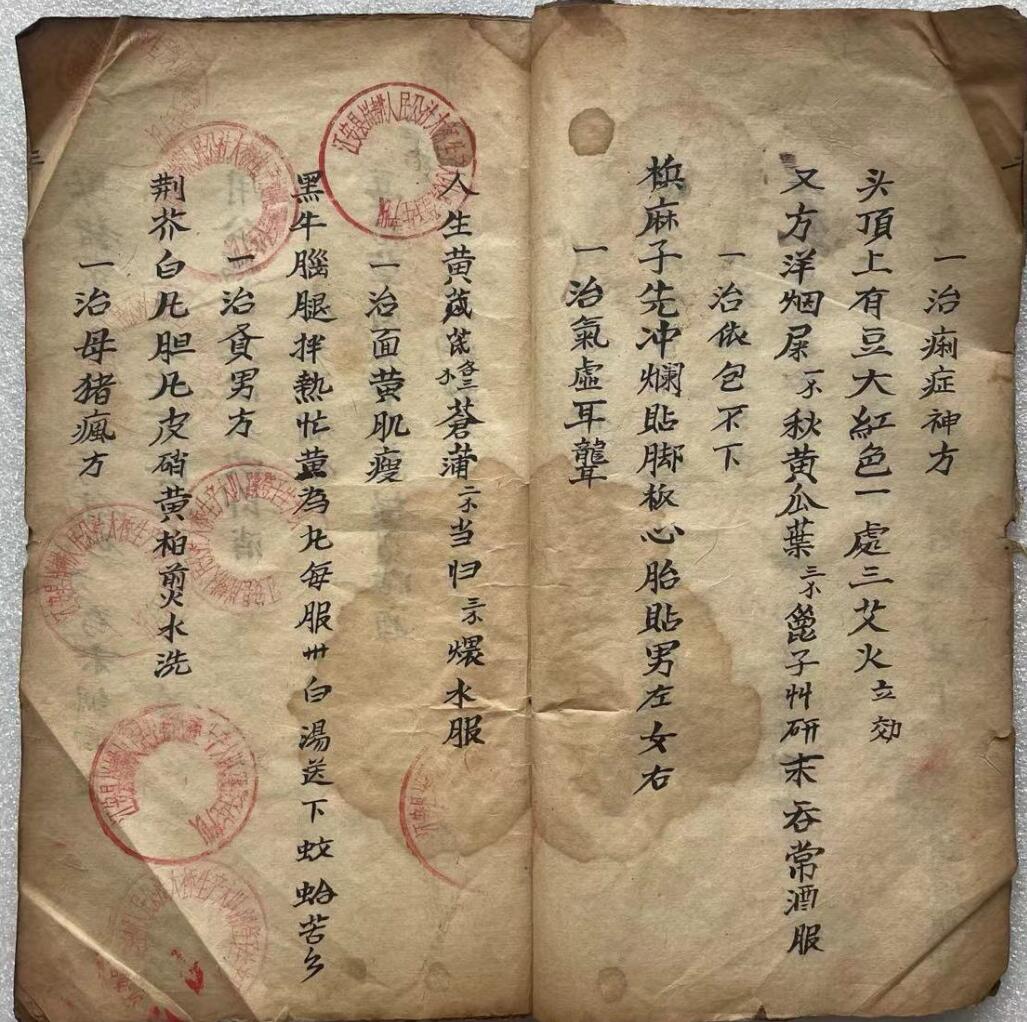 一治痢症神方
头頂上有豆大紅色一處三艾火立効
又方洋烟屎一不秋黄瓜葉三不篦子艸研末吞常酒服
一治依包不下
麻子先冲爛貼脚板心胎貼男左女右
一治氣虛耳聾
人生黄茋茋各三不蒼蒲二不当归三不煨水服
一治面黄肌瘦
黑牛腦腿拌熱忙為丸每服卅白湯送下蚊蛤苦
一治男方
荆芥白凡胆凡皮硝黄柏煎水洗
一治母猪瘋方
江安县人民公社大桥生产